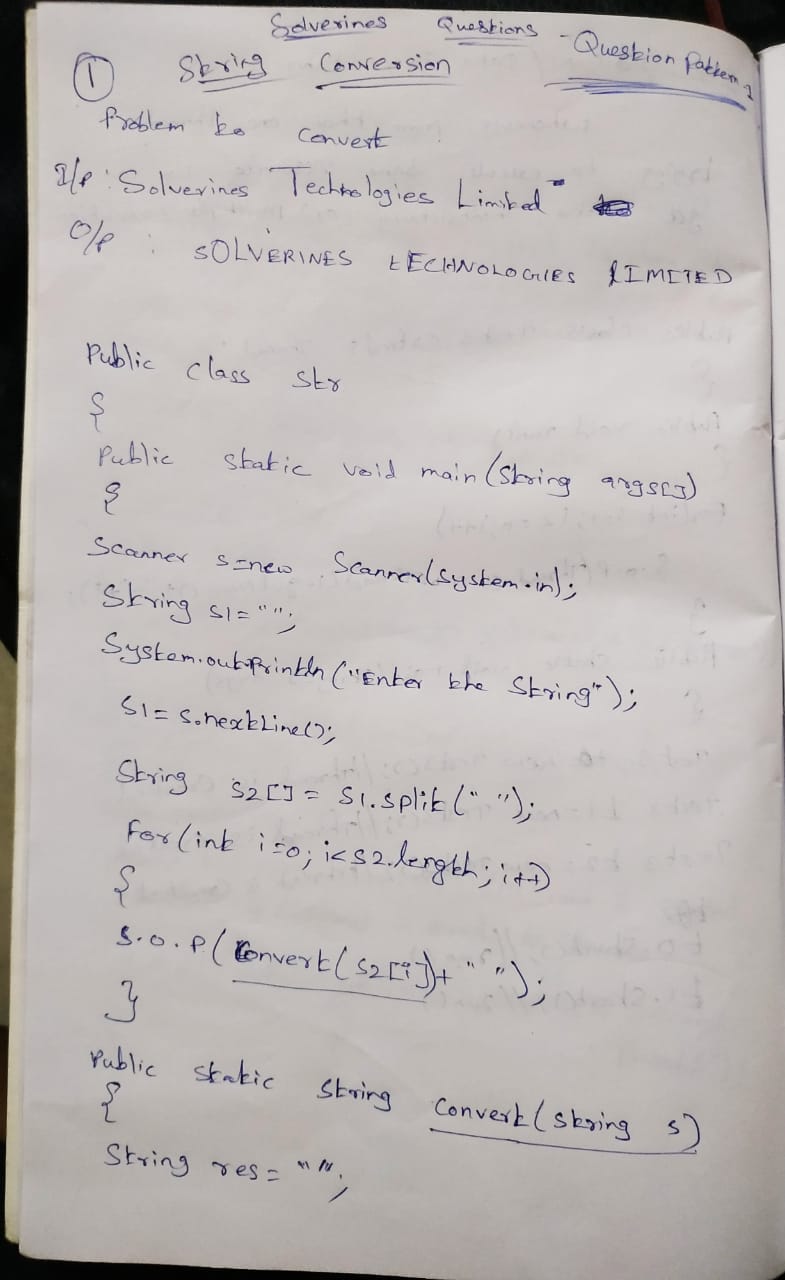 Solverines Questions - Question Pattern 1
① String Conversion
Problem to convert
I/P : Solverines Technologies Limited
O/P : sOLVERINES tECHNOLOGIES lIMITED
Public class Str
{
Public static void main(String args[])
{
Scanner s=new Scanner(System.in);
String s1="";
System.out.Println("Enter the String");
S1=S.nextLine();
String S2[]= S1.split(" ");
For(int i=0; i<s2.length; i++)
{
S.o.P(Convert(S2[i])+" ");
}
Public static String Convert(String s)
{
String res="";